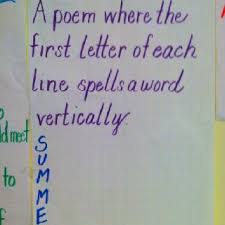 A poem where the
first letter of each
line spells a word
vertically.
S
U
M
M
E
d meet
to